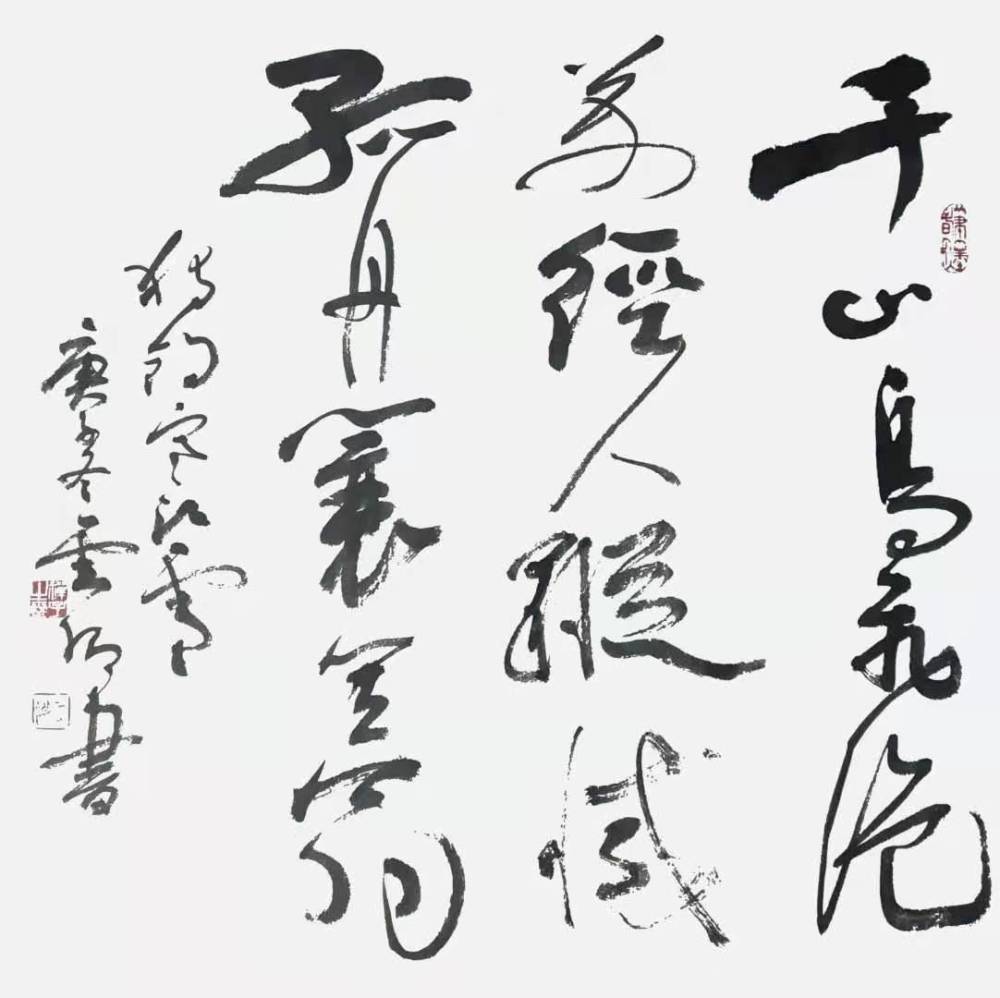 千山鳥飛絕
萬徑人蹤滅
孤舟蓑笠翁
獨釣寒江雪
庚子冬雲卿書